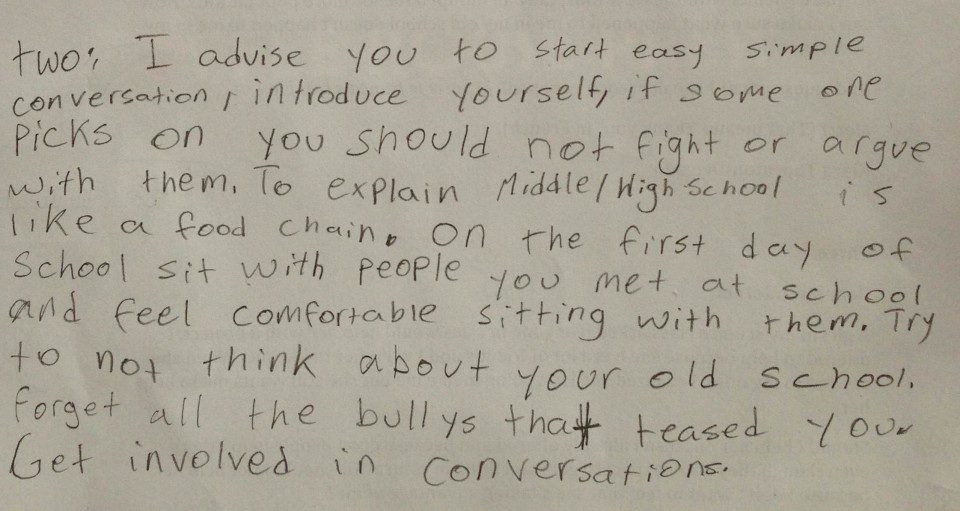 two: I advise you to start easy simple
conversation, introduce yourself, if some one
Picks on you should not fight or argue
with them. To explain Middle/High School is
like a food chain. On the first day of
School sit with people you met at school
and feel comfortable sitting with them. Try
to not think about your old school.
Forget all the bullys that teased you.
Get involved in conversations.